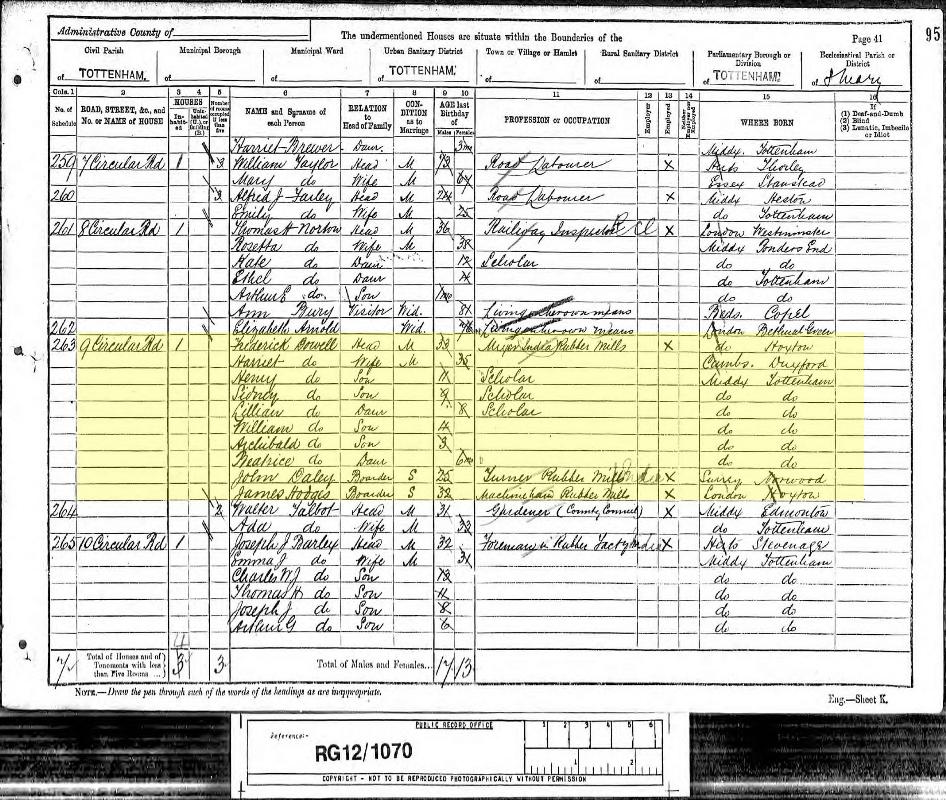 Administrative County of
The undermentioned Houses are situate within the Boundaries of the
Page 41
95
Civil Parish
Municipal Borough
Municipal Ward
Urban Sanitary District
Town or Village or Hamlet
Rural Sanitary District
Parliamentary Borough or Division
Ecclesiastical Parish or District
of TOTTENHAM. of of of TOTTENHAM. of of of TOTTENHAM. of St Mary
Cols. 1 2 3 4 5 6 7 8 9 10 11 12 13 14 15 16
No. of Schedule
ROAD, STREET, &c., and No. or NAME of HOUSE
HOUSES
Inhabited
Uninhabited (U.), or Building (B.)
Number of rooms occupied if less than five
NAME and Surname of each Person
RELATION to Head of Family
CONDITION as to Marriage
AGE last Birthday of
Males
Females
PROFESSION or OCCUPATION
Employer
Employed
Neither Employer nor Employed
WHERE BORN
If
(1) Deaf-and-Dumb
(2) Blind
(3) Lunatic, Imbecile or Idiot
Harriet Brewer Daur. 3mo Middx. Tottenham
259 7 Circular Rd 1 3 William Taylor Head M 73 Road Labourer X Herts Thorley
Mary do Wife M 64 Essex Stanstead
260 3 Alfred J Farley Head M 24 Road Labourer X Middx Heston
Emily do Wife M 25 do Tottenham
261 8 Circular Rd 1 Thomas H Norton Head M 36 Railway Inspector X London Westminster
Rosetta do Wife M 38 Middx Ponders End
Kate do Daur 12 Scholar do do
Ethel do Daur 4 do Tottenham
Arthur E do. Son 1mo do do
Ann Bury Visitor Wid. 81 Living on her own means Beds. Copel
262 Elizabeth Arnold Wid. Living on her own means London Bethnal Green
263 9 Circular Rd 1 Frederick Dowell Head M 33 Mixer India Rubber Mills X do Hoxton
Harriet do Wife M 35 Cambs. Duxford
Henry do Son 11 Scholar Middx Tottenham
Sidney do Son 9 Scholar do do
Lillian do Daur 8 Scholar do do
William do Son 4 do do
Archibald do Son 3 do do
Beatrice do Daur 6mo do do
John Daley Boarder S 25 Turner Rubber Mills India X Surrey Norwood
James Hodges Boarder S 32 Machineman Rubber Mills X London Hoxton
264 2 Walter Talbot Head M 31 Gardener (County Council) X Middx Edmonton
Ada do Wife M 23 do Tottenham
265 10 Circular Rd 1 Joseph J Barley Head M 32 Foreman in Rubber Facty India X Herts Stevenage
Emma J do Wife M 31 Middx Tottenham
Charles W J do Son 13 do do
Thomas H do Son 11 do do
Joseph J do Son 8 do do
Arthur G do Son 6 do do
4
7 Total of Houses and of Tenements with less than Five Rooms ... 3 3 Total of Males and Females... 17 13
NOTE.—Draw the pen through such of the words of the headings as are inappropriate.
Eng.—Sheet K.
PUBLIC RECORD OFFICE
1 2 3 4 5 6
Reference:-
RG12/1070
1 2
COPYRIGHT - NOT TO BE REPRODUCED PHOTOGRAPHICALLY WITHOUT PERMISSION